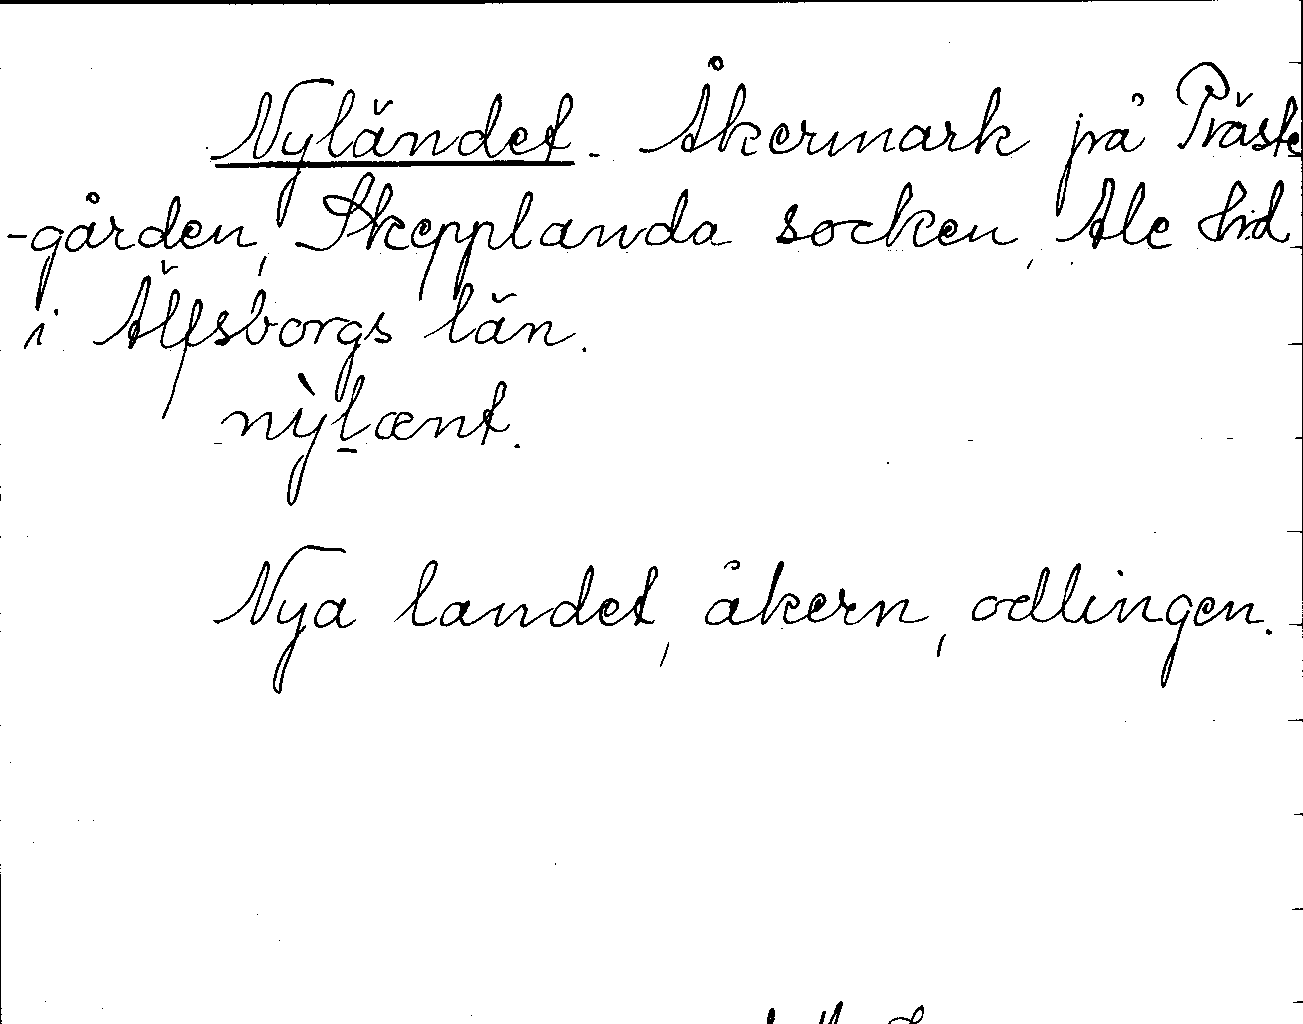 Nyländet. Åkermark på Präste
-gården, Skepplanda socken, Ale hd
i Älfsborgs län.
nỳlænt.
Nya landet, åkern, odlingen.